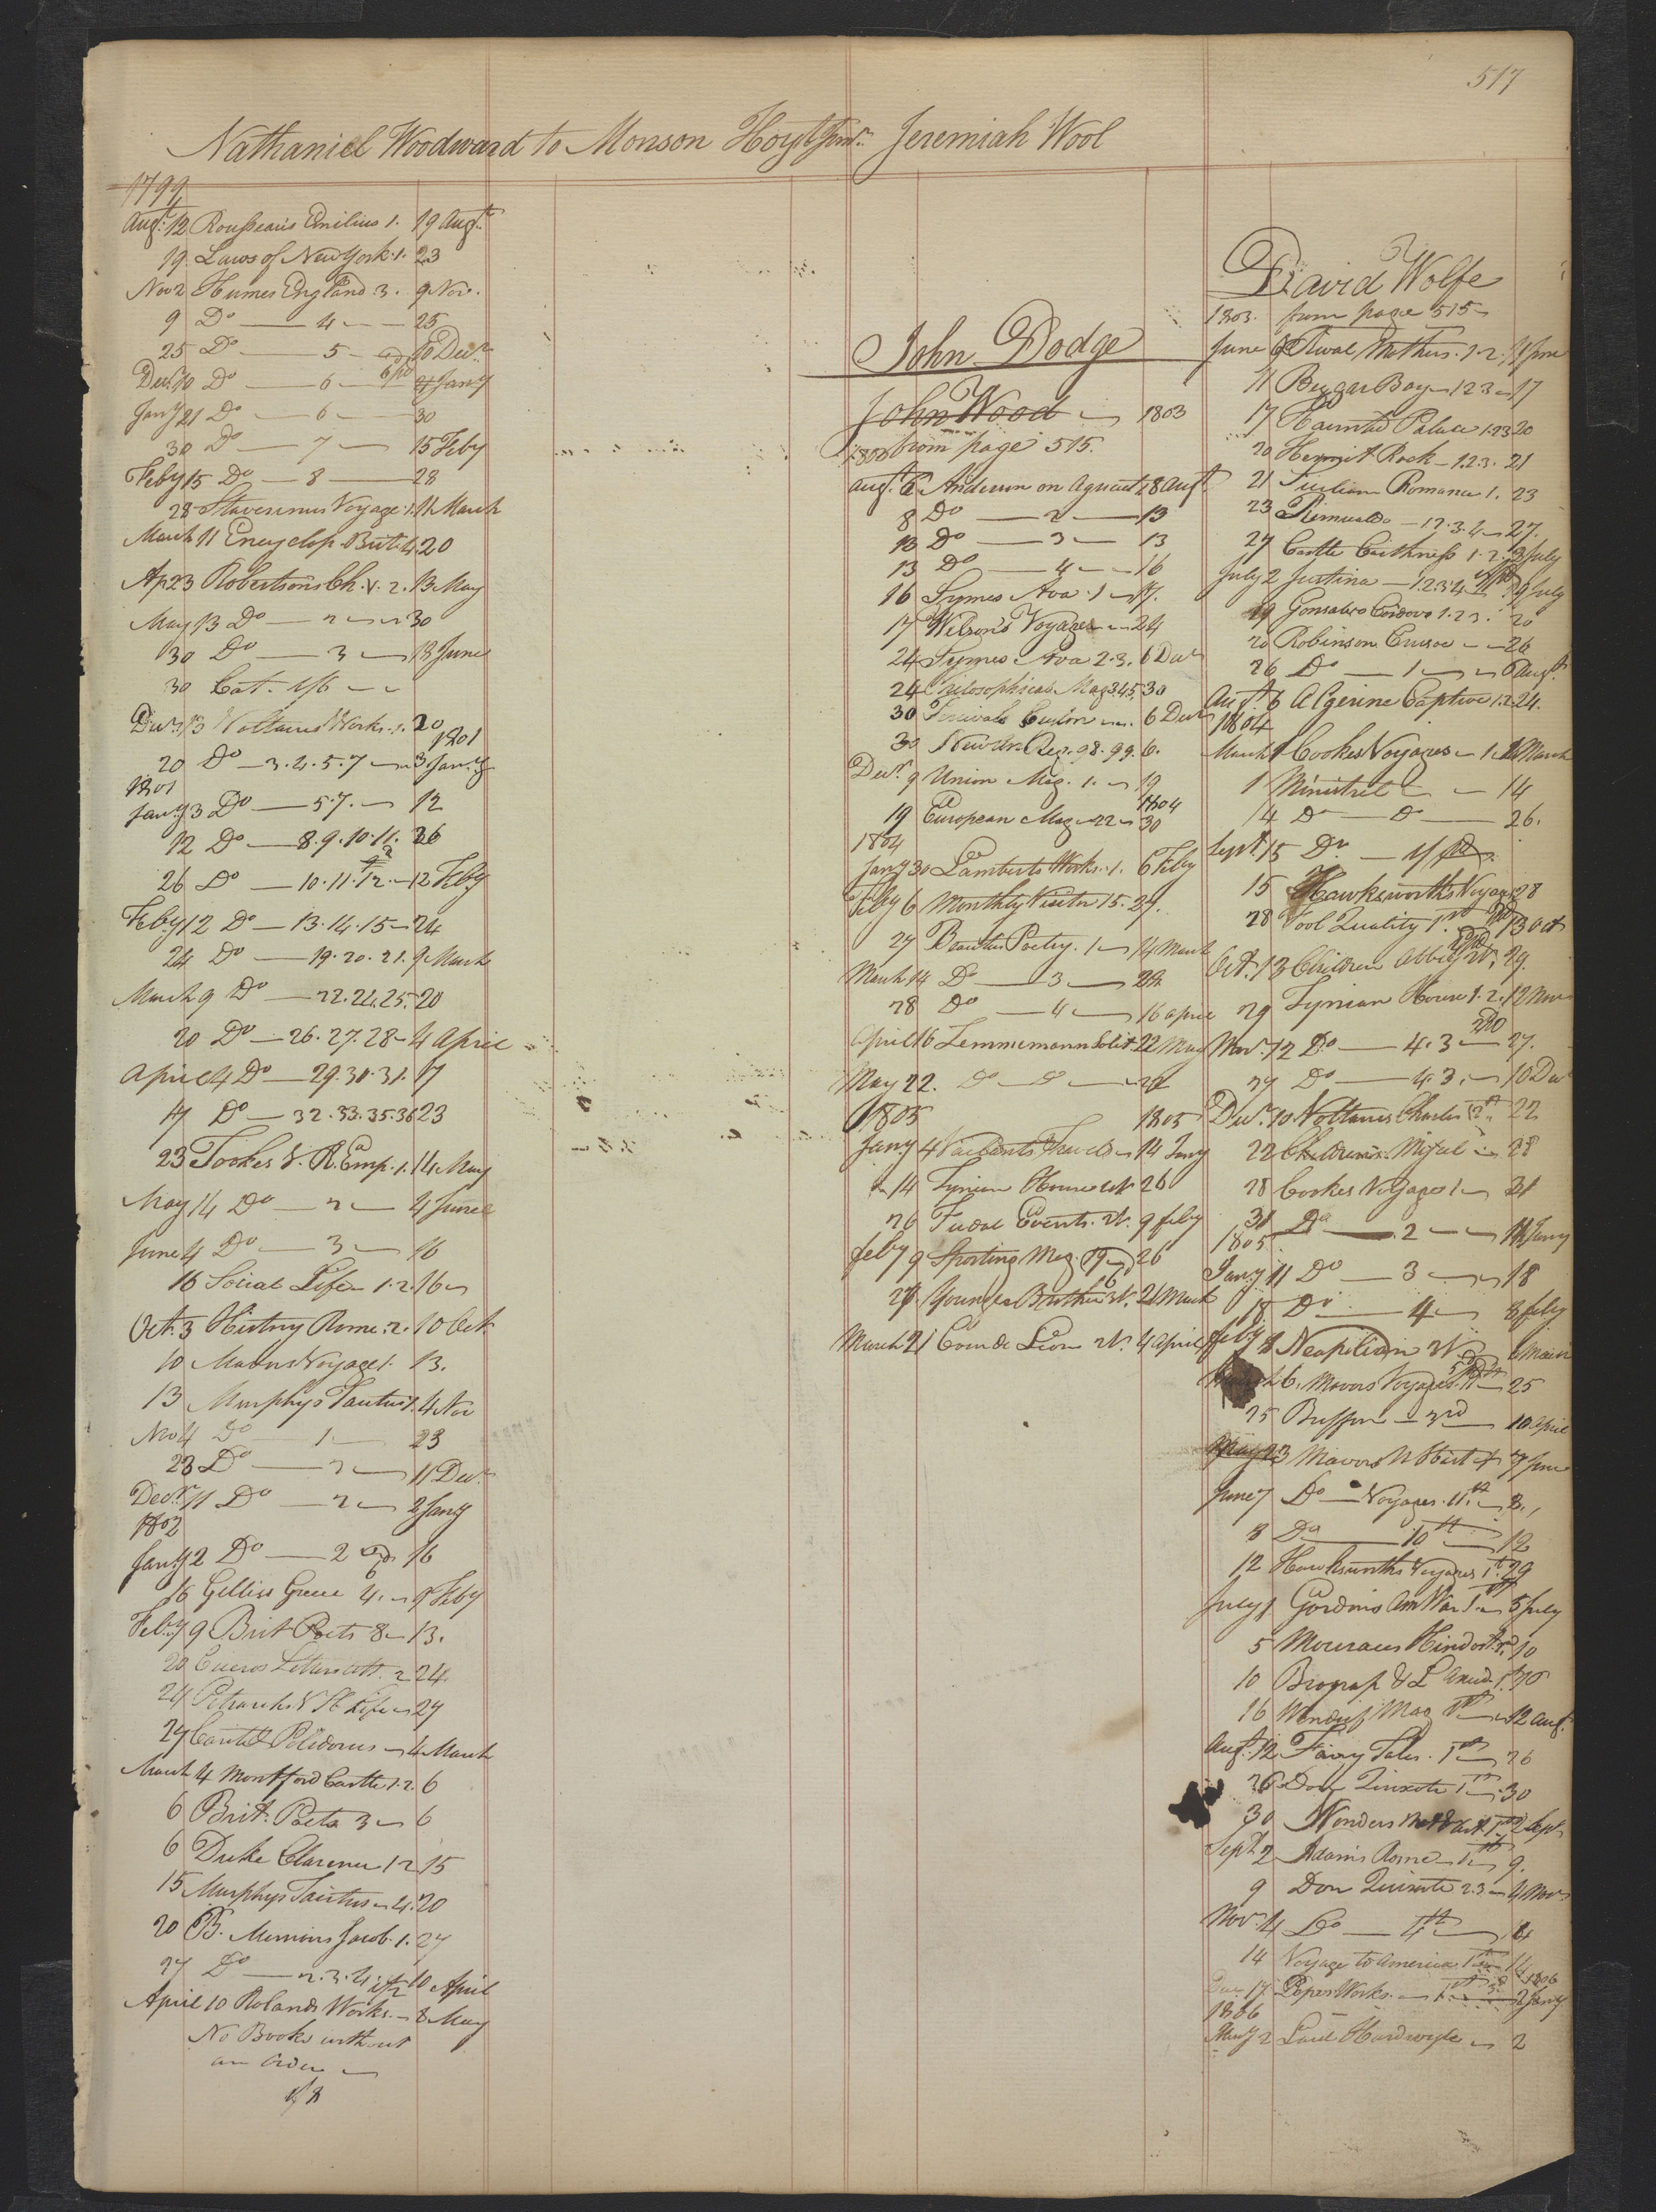 517
Nathaniel Woodward to Monson Hoyt Junr. Jeremiah Wool
1799
Augt. 12 Rousseau's Emilius 1. 19 Augt.
19 Laws of New York 1. 23
Nov 2 Humes England 3. 9 Nov.
9 Do 4 25
25 Do 5 10 Decr.
Decr. 10 Do 6 21 Jany
Jany 21 Do 6 30
30 Do 7 15 Feby
Feby 15 Do 8 28
28 Stavorinus Voyage 1. 11 March
March 11 Encyclop. Brit. 4 20
Ap 23 Robertsons Ch. V. 2. 13 May
May 13 Do 2 30
30 Do 3 13 June
30 Cat. 1/6
Decr. 13 Voltaires Works. 1. 20
1801
20 Do 3.4.5.7 3 Jany
1801
Jany 3 Do 5.7. 12
12 Do 8.9.10.11. 26
26 Do 10.11.12. 12 Feby
Feby 12 Do 13.14.15 24
24 Do 19.20.21. 9 March
March 9 Do 22.24.25. 20
20 Do 26.27.28 4 April
April 4 Do 29.30.31. 17
17 Do 32.33.35.36 23
23 Tookes V. R. Emp. 1. 14 May
May 14 Do 2 4 June
June 4 Do 3 16
16 Social Life 1.2. 16
Oct. 3 History Rome. 2. 10 Oct.
10 Mavors Voyage 1. 13.
13 Murphys Tacitus 1. 4 Nov
Nov 4 Do 1 23
23 Do 2 11 Decr.
Decr. 11 Do 2 2 Jany
1802
Jany 2 Do 2 16
16 Gillies Greece 4. 9 Feby
Feby 9 Brit Poets 8 13.
20 Ciceros Letters Att. 2 24
24 Petrarchs Life 27
27 Count Polidorus 4 March
March 4 Montford Castle 1.2. 6
6 Brit. Poets 3 6
6 Duke Clarence 1 2 15
15 Murphys Tacitus 4. 20
20 B. Memoirs Jacob. 1. 27
27 Do 2.3.4 10 April
April 10 Rolands Works. 8 May
No Books without
an order
John Dodge
John Wood 1803
1803 from page 515.
Augt. 6 Anderson on Agricult. 8 Augt.
8 Do 2 13
13 Do 3 13
13 Do 4 16
16 Symes Ava. 1 17.
17 Wilson's Voyage 24
24 Symes Ava 2.3. 6 Decr
24 Philosophical Mag 3.4.5. 30
30 Percivals Ceylon 6 Decr
30 New An. Reg. 98.99. 6.
Decr. 9 Union Mag. 1. 19
1804
19 European Mag 22 30
1804
Jany 30 Lamberts Works. 1. 6 Feby
Feby 6 Monthly Visitor 15. 27.
27 Poetry. 1 14 March
March 14 Do 3 28
28 Do 4 16 April
April 16 Zimmermann Solit. 22 May
May 22. Do Do
1805 1805
Jany 4 Vaillants Travels 14 Jany
14 Tynian House 26
26 Fudal Events. 9 feby
feby 9 Sporting Mag. 19 26
26 Younger Brother 21 March
March 21 Cour de Lion 4 April
David Wolfe
1803. from page 515
June 6 Rival Mothers. 1.2. 11 June
11 Beggar Boy 1 2 3 17
17 Haunted Palace 1.2.3 20
20 Hermit Rock 1.2.3. 21
21 Sicilian Romance 1. 23
23 Rimualdo 1 2.3.4 27.
27 Castle Caithness 1.2. 2 July
July 2 Justina 1.2.3.4 19 July
19 Gonsalvo Cordova 1.2.3. 20
20 Robinson Crusoe 26
26 Do 1 6 Augt.
Augt. 6 Algerine Captive 1.2. 24.
1804
March 1 Cookes Voyages 1. March
1 Minstrel 14
14 Do Do 26.
Sept. 15 Do
15 Hawksworths Voyage 28
28 Fool Quality 1st 13 Oct
Oct. 13 Children Abbey 29.
29 Tynian House 1.2. 12 Nov
Nov. 12 Do 4.3 27.
27 Do 4.3. 10 Decr
Decr. 10 Voltaires Charles 12th 22
22 Childrens 28
28 Cookes Voyages 1 31
31 Do 2 11 Jany
1805
Jany 11 Do 3 18
18 Do 4 8 feby
feby 8 Neapolitan
6. Mavors Voyages. 25
25 Buffon 3rd 10 April
May 23 Mavors N Hist 7 June
June 7 Do Voyages. 11th 8.
8 Do 10th 12
12 Hawksworths Voyages 1st 29
July 1 Gordons Am War 1st 5 July
5 Hindost. 10
10 Biograp 16
16 Mag 1st 12 Augt.
Augt. 12 Fairy Tales. 1st 26
26 Don Quixote 1st 30
30 Wonders 2 Sept
Sept 2 Adams Rome 1st 9.
9 Don Quixote 2.3 4 Nov
Nov. 4 Do 4th 14
14 Voyage to America 1st 14
1806
Decr. 17 Popes Works. 2 Jany
1806
Jany 2 2